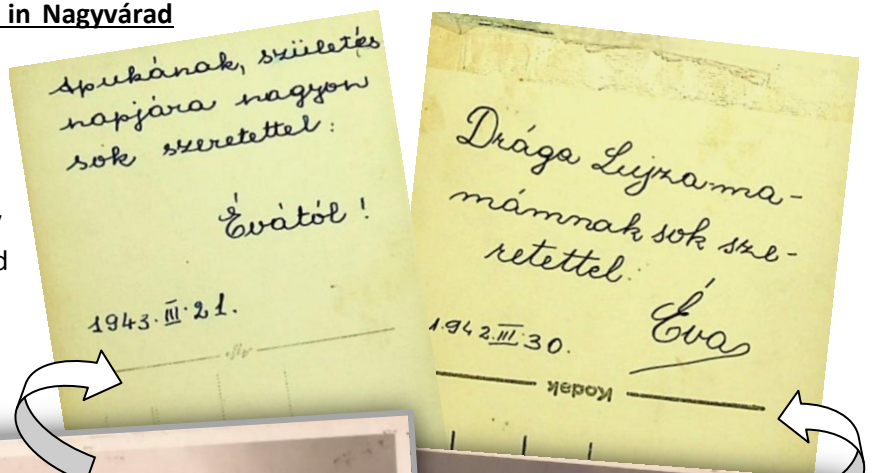 in Nagyvárad
Apukának, születés
napjára nagyon
sok szeretettel:
Évától!
1943. III. 21.
Drága Lujza-ma-
mámnak sok sze-
retettel:
Éva
1.942. III. 30.
Kodak